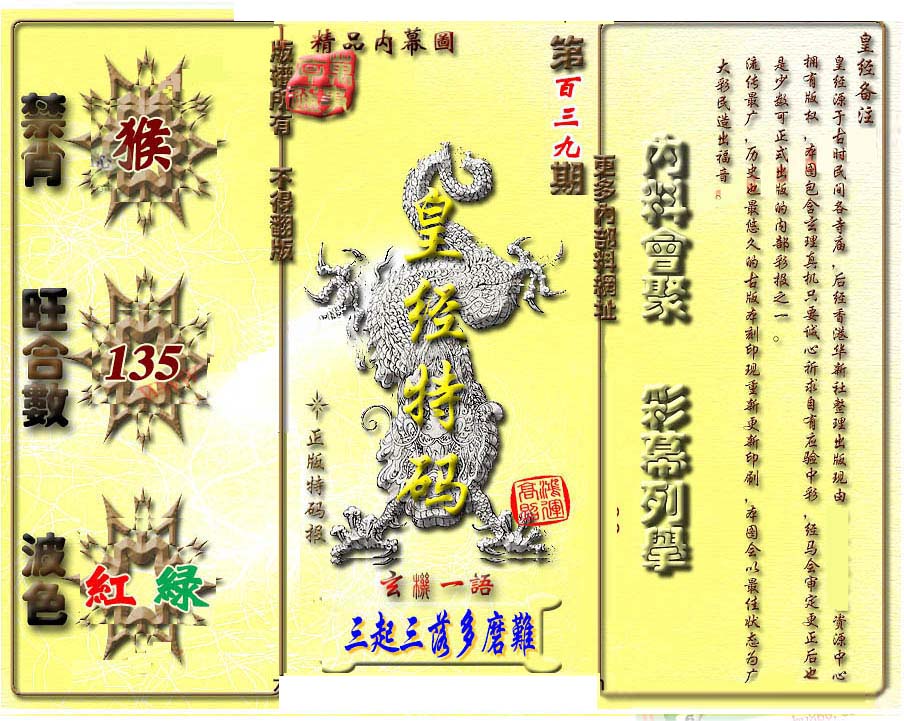 精品内幕圖
版權所有 不得翻版
第百三九期
更多內部料網址
皇经特码
正版特码报
鴻運高照
玄機一語
三起三落多磨難
禁肖
猴
旺合數
135
波色
紅 綠
內料會聚
彩幕列學
皇经备注
皇经源于古时民间各寺庙，后经香港华新社整理出版现由 资源中心
拥有版权，本图包含玄理真机只要诚心祈求自有应验中彩，经马会审定更正后也
是少数可正式出版的内部彩报之一。
流传最广，历史也最悠久的古版本刻印现重新更新印刷，本图会以最佳状态为广
大彩民造出福音